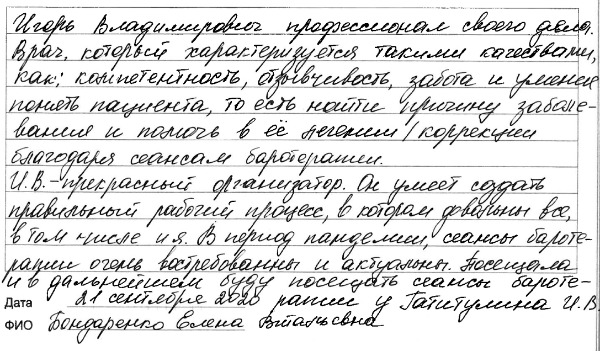 Игорь Владимирович профессионал своего дела.
Врач, который характеризуется такими качествами,
как: компетентность, отзывчивость, забота и умение
понять пациента, то есть найти причину заболе-
вания и помочь в её лечении/коррекции
благодаря сеансам баротерапии.
И.В.-прекрасный организатор. Он умеет создать
правильный рабочий процесс, в котором довольны все,
в том числе и я. В период пандемии, сеансы бароте-
рапии очень востребованны и актуальны. Посещала
и в дальнейшем буду посещать сеансы бароте-
Дата 21 сентября 2020 рапии у Гатитулина И.В.
ФИО Бондаренко Елена Витальевна